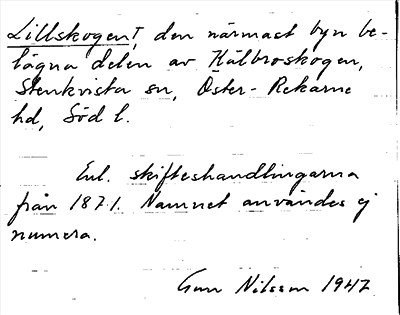 Lillskogen†, den närmast byn be-
lägna delen av Kälbroskogen,
Stenkvista sn, Öster-Rekarne
hd, Söd l.
Enl. skifteshandlingarna
från 1871. Namnet användes ej
numera.
Gun Nilsson 1947